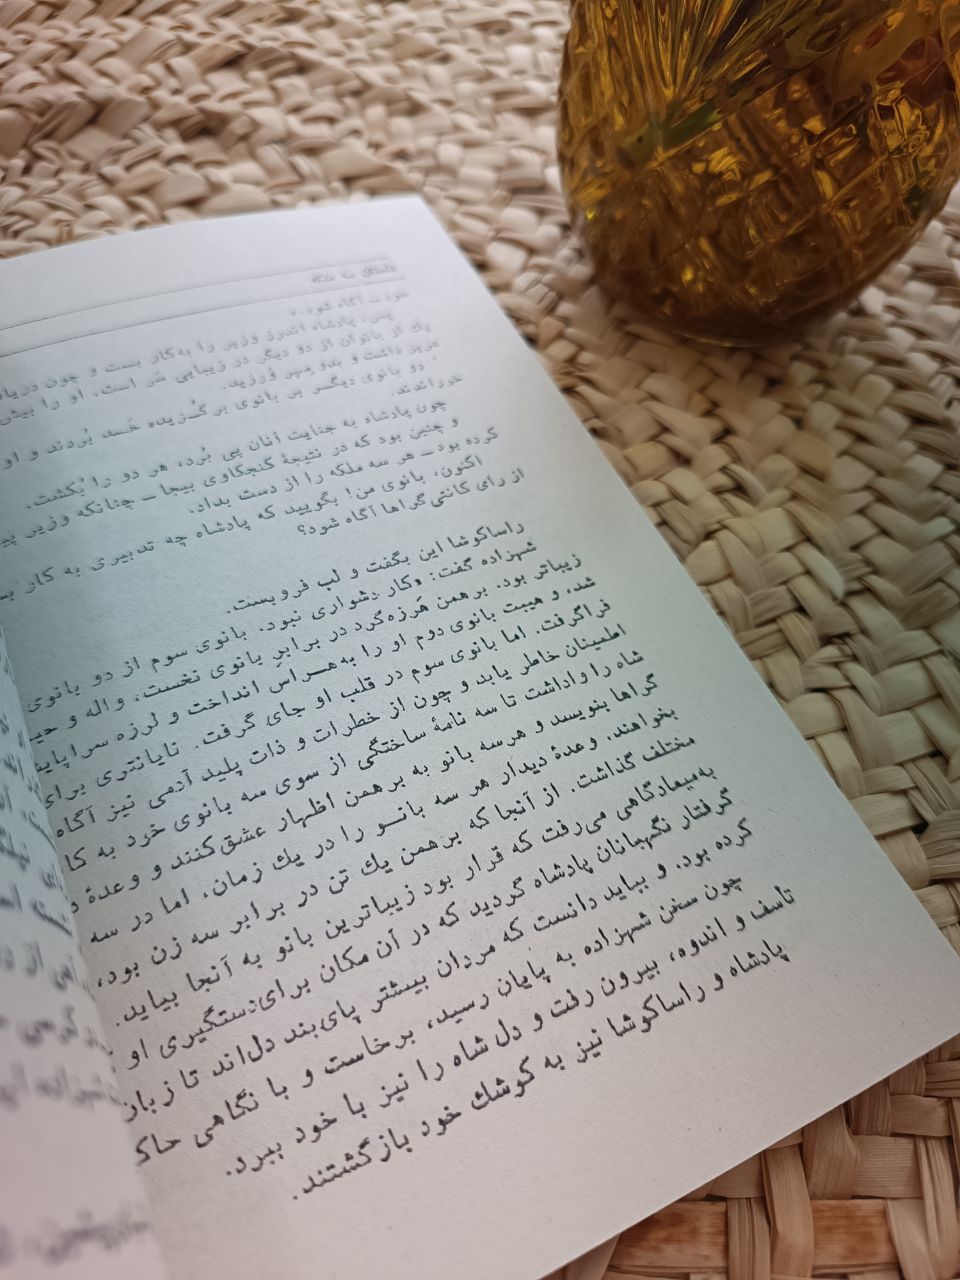 خود بند آگاه شود.»
پس، پادشاه اندرز وزیر را به‌کار بست و چون دریا
یك از بانوان از دو دیگر در زیبایی سَر است، او را بیش
عزیز داشت و بدو مِهر وُرزید.
دو بانوی دیگـر بر بانوی برگـُزیده حَسد بُردند و او
خوراندند.
چون پادشاه به جنایت آنان پی بُرد، هر دو را بُکشت.
و چنین بود که در نتیجهٔ کنجکاوی بیجا ــ چنانکه وزیر پی
کرده بود ــ هر سه ملکه را از دست بداد.
اکنون، بانوی من! بگویید که پادشاه چه تدبیری به کار ب
از رای کانتی‌گراها آگاه شود؟
راساکوشا این بگفت و لب فروبست.
شهزاده گفت: «کار دشواری نبود. بانوی سوم از دو بانوی
زیباتر بود. برهمن هَرزه‌گرد در برابرِ بانوی نخست، واله و حی
شد، و هیبت بانوی دوم او را به‌هـراس انداخت و لرزه سراپایش
فراگرفت. اما بانوی سوم در قلب او جای گرفت. تاپانتری برای
اطمینان خاطر یابد و چون از خطرات و ذات پلید آدمی نیز آگاه
شاه را واداشت تا سه نامهٔ ساختگی از سوی سه بانوی خرد به کا
گراها بنویسد و هرسه بانو به برهمن اظهار عشق‌کنند و وعدهٔ د
بخواهند. وعدهٔ دیدار هر سه بانـو را در یك زمان، اما در سه
مختلف گذاشت. از آنجا که برهمن یك تن در برابر سه زن بود،
به‌میعادگاهی می‌رفت که قرار بود زیباترین بانو به آنجا بیاید.
گرفتار نگهبانان پادشاه گردید که در آن مکان برای‌دستگیری او
کرده بود. و بباید دانست که مردان بیشتر پای‌بند دل‌اند تا زبان
چون سخن شهزاده به پایان رسید، برخاست و با نگاهی حاک
تأسف و اندوه، بیرون رفت و دل شاه را نیز با خود ببرد.
پادشاه و راساکوشا نیز به کوشك خود بازگشتند.